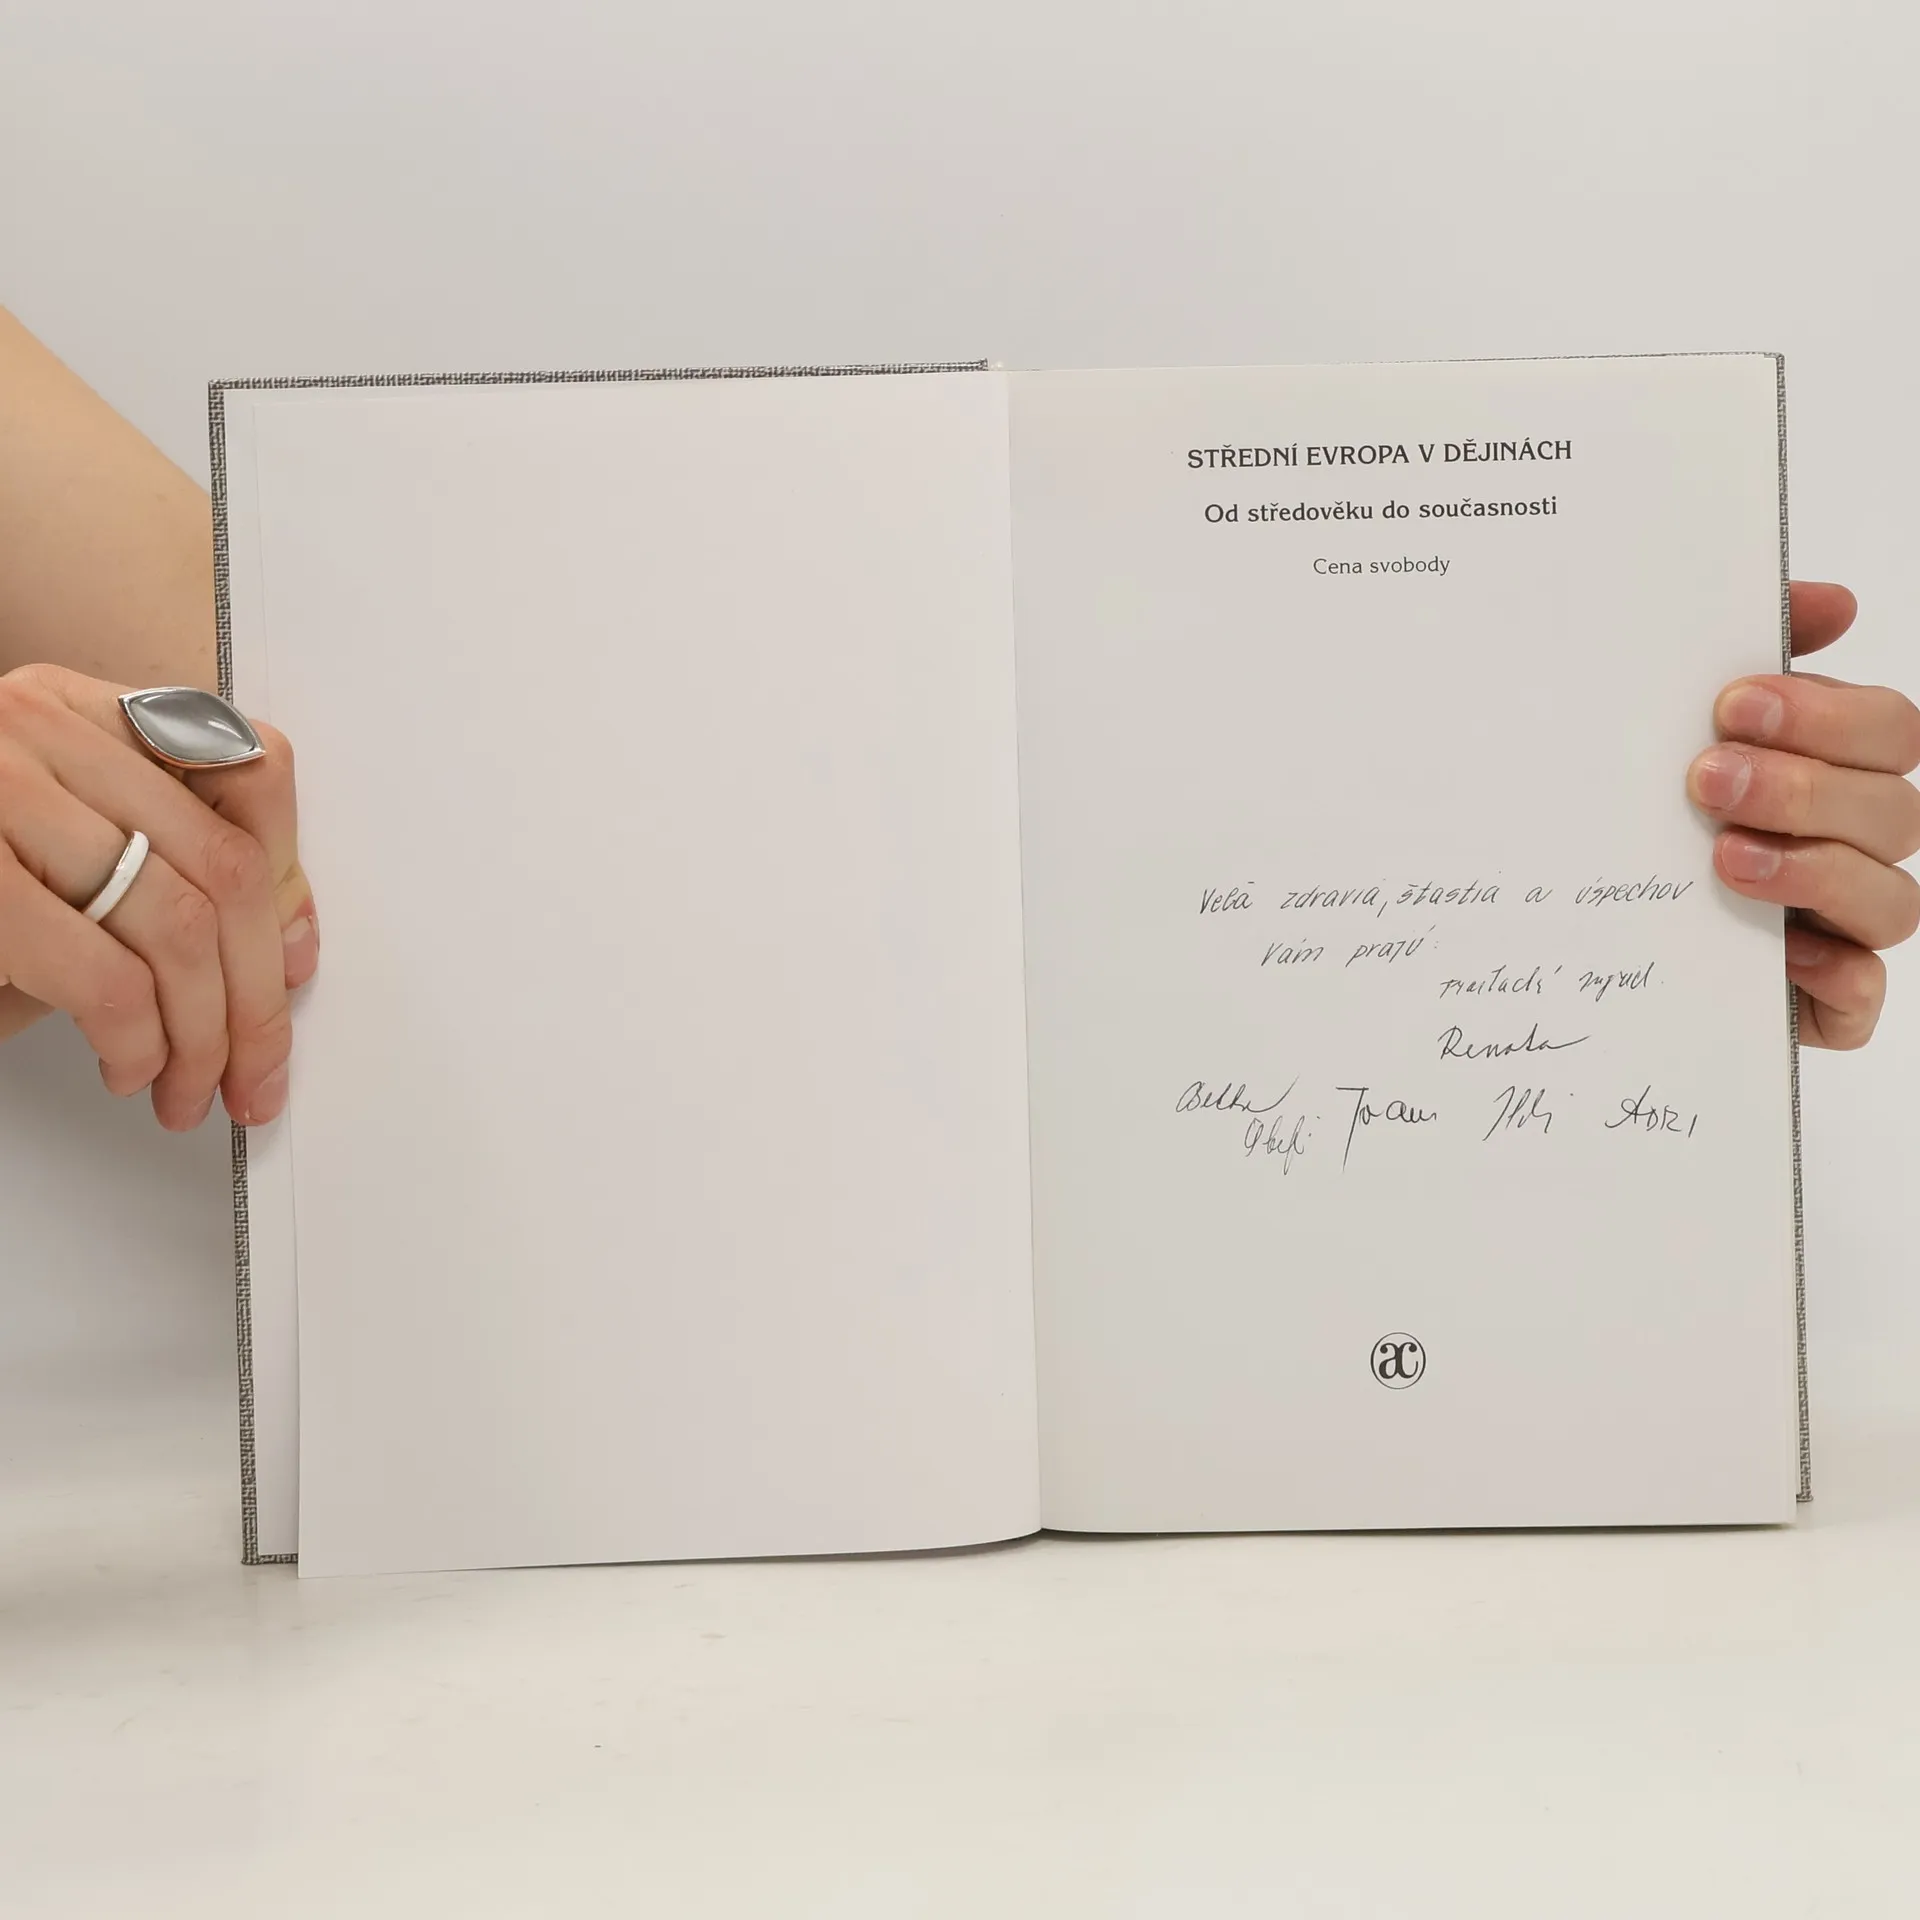 STŘEDNÍ EVROPA V DĚJINÁCH
Od středověku do současnosti
Cena svobody
Veľa zdravia, šťastia a úspechov
Vám prajú:
Renata
Betka Ivan Ildi ADRI
ac